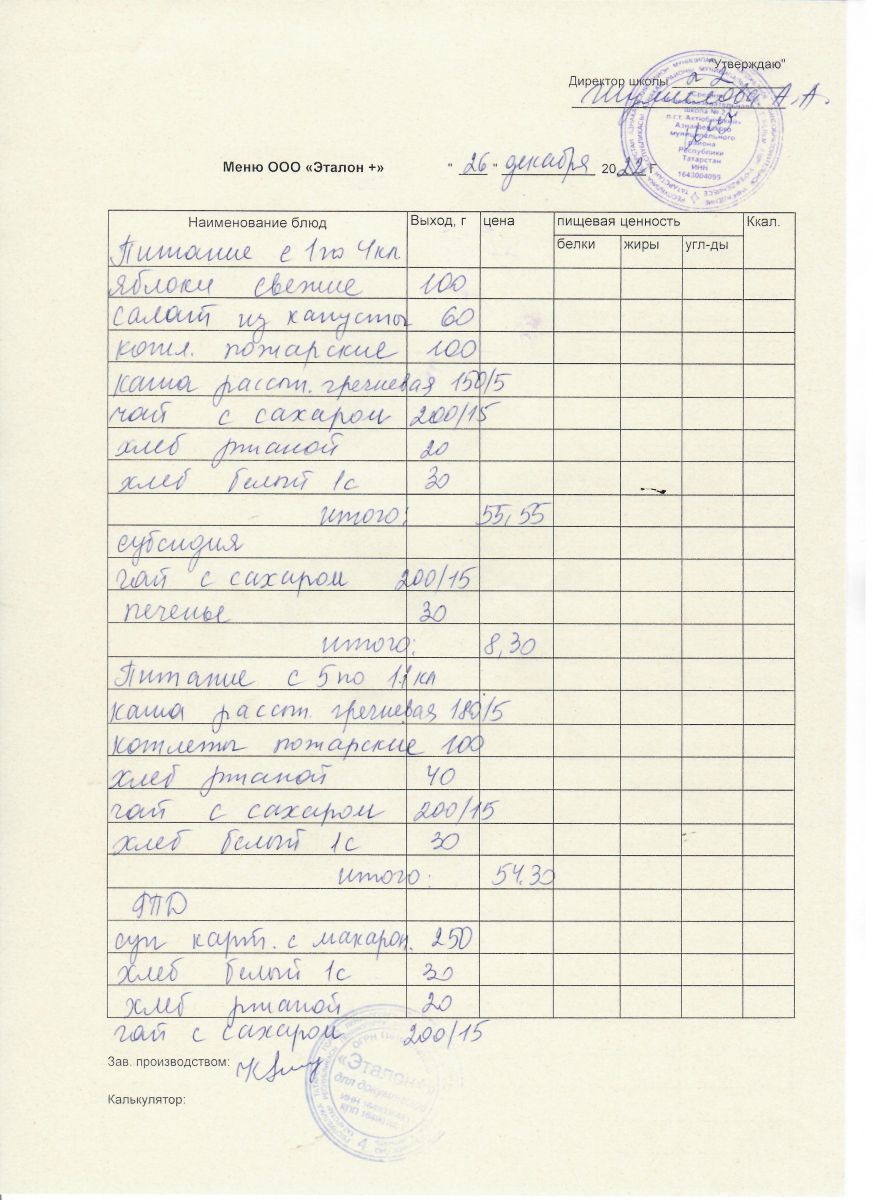 "Утверждаю"
Директор школы
А.А.
Меню ООО «Эталон +» " 26 " декабря 2022 г
Наименование блюд Выход, г цена пищевая ценность Ккал.
белки жиры угл-ды
Питание с 1 по 4 кл
яблоки свежие 100
салат из капусты 60
котл. пожарские 100
каша рассып. гречневая 150/5
чай с сахаром 200/15
хлеб ржаной 20
хлеб белый 1с 30
итого: 55,55
субсидия
чай с сахаром 200/15
печенье 30
итого: 8,30
Питание с 5 по 11 кл
каша рассып. гречневая 180/5
котлеты пожарские 100
хлеб ржаной 40
чай с сахаром 200/15
хлеб белый 1с 30
итого: 54.30
ГПД
суп карт. с макарон. 250
хлеб белый 1с 30
хлеб ржаной 20
чай с сахаром 200/15
Зав. производством:
Калькулятор:
школа № 2
п.г.т. Актюбинский»
Азнакаевского
муниципального
района
Республики
Татарстан
ИНН
1643004099
«Эталон+»
для документов